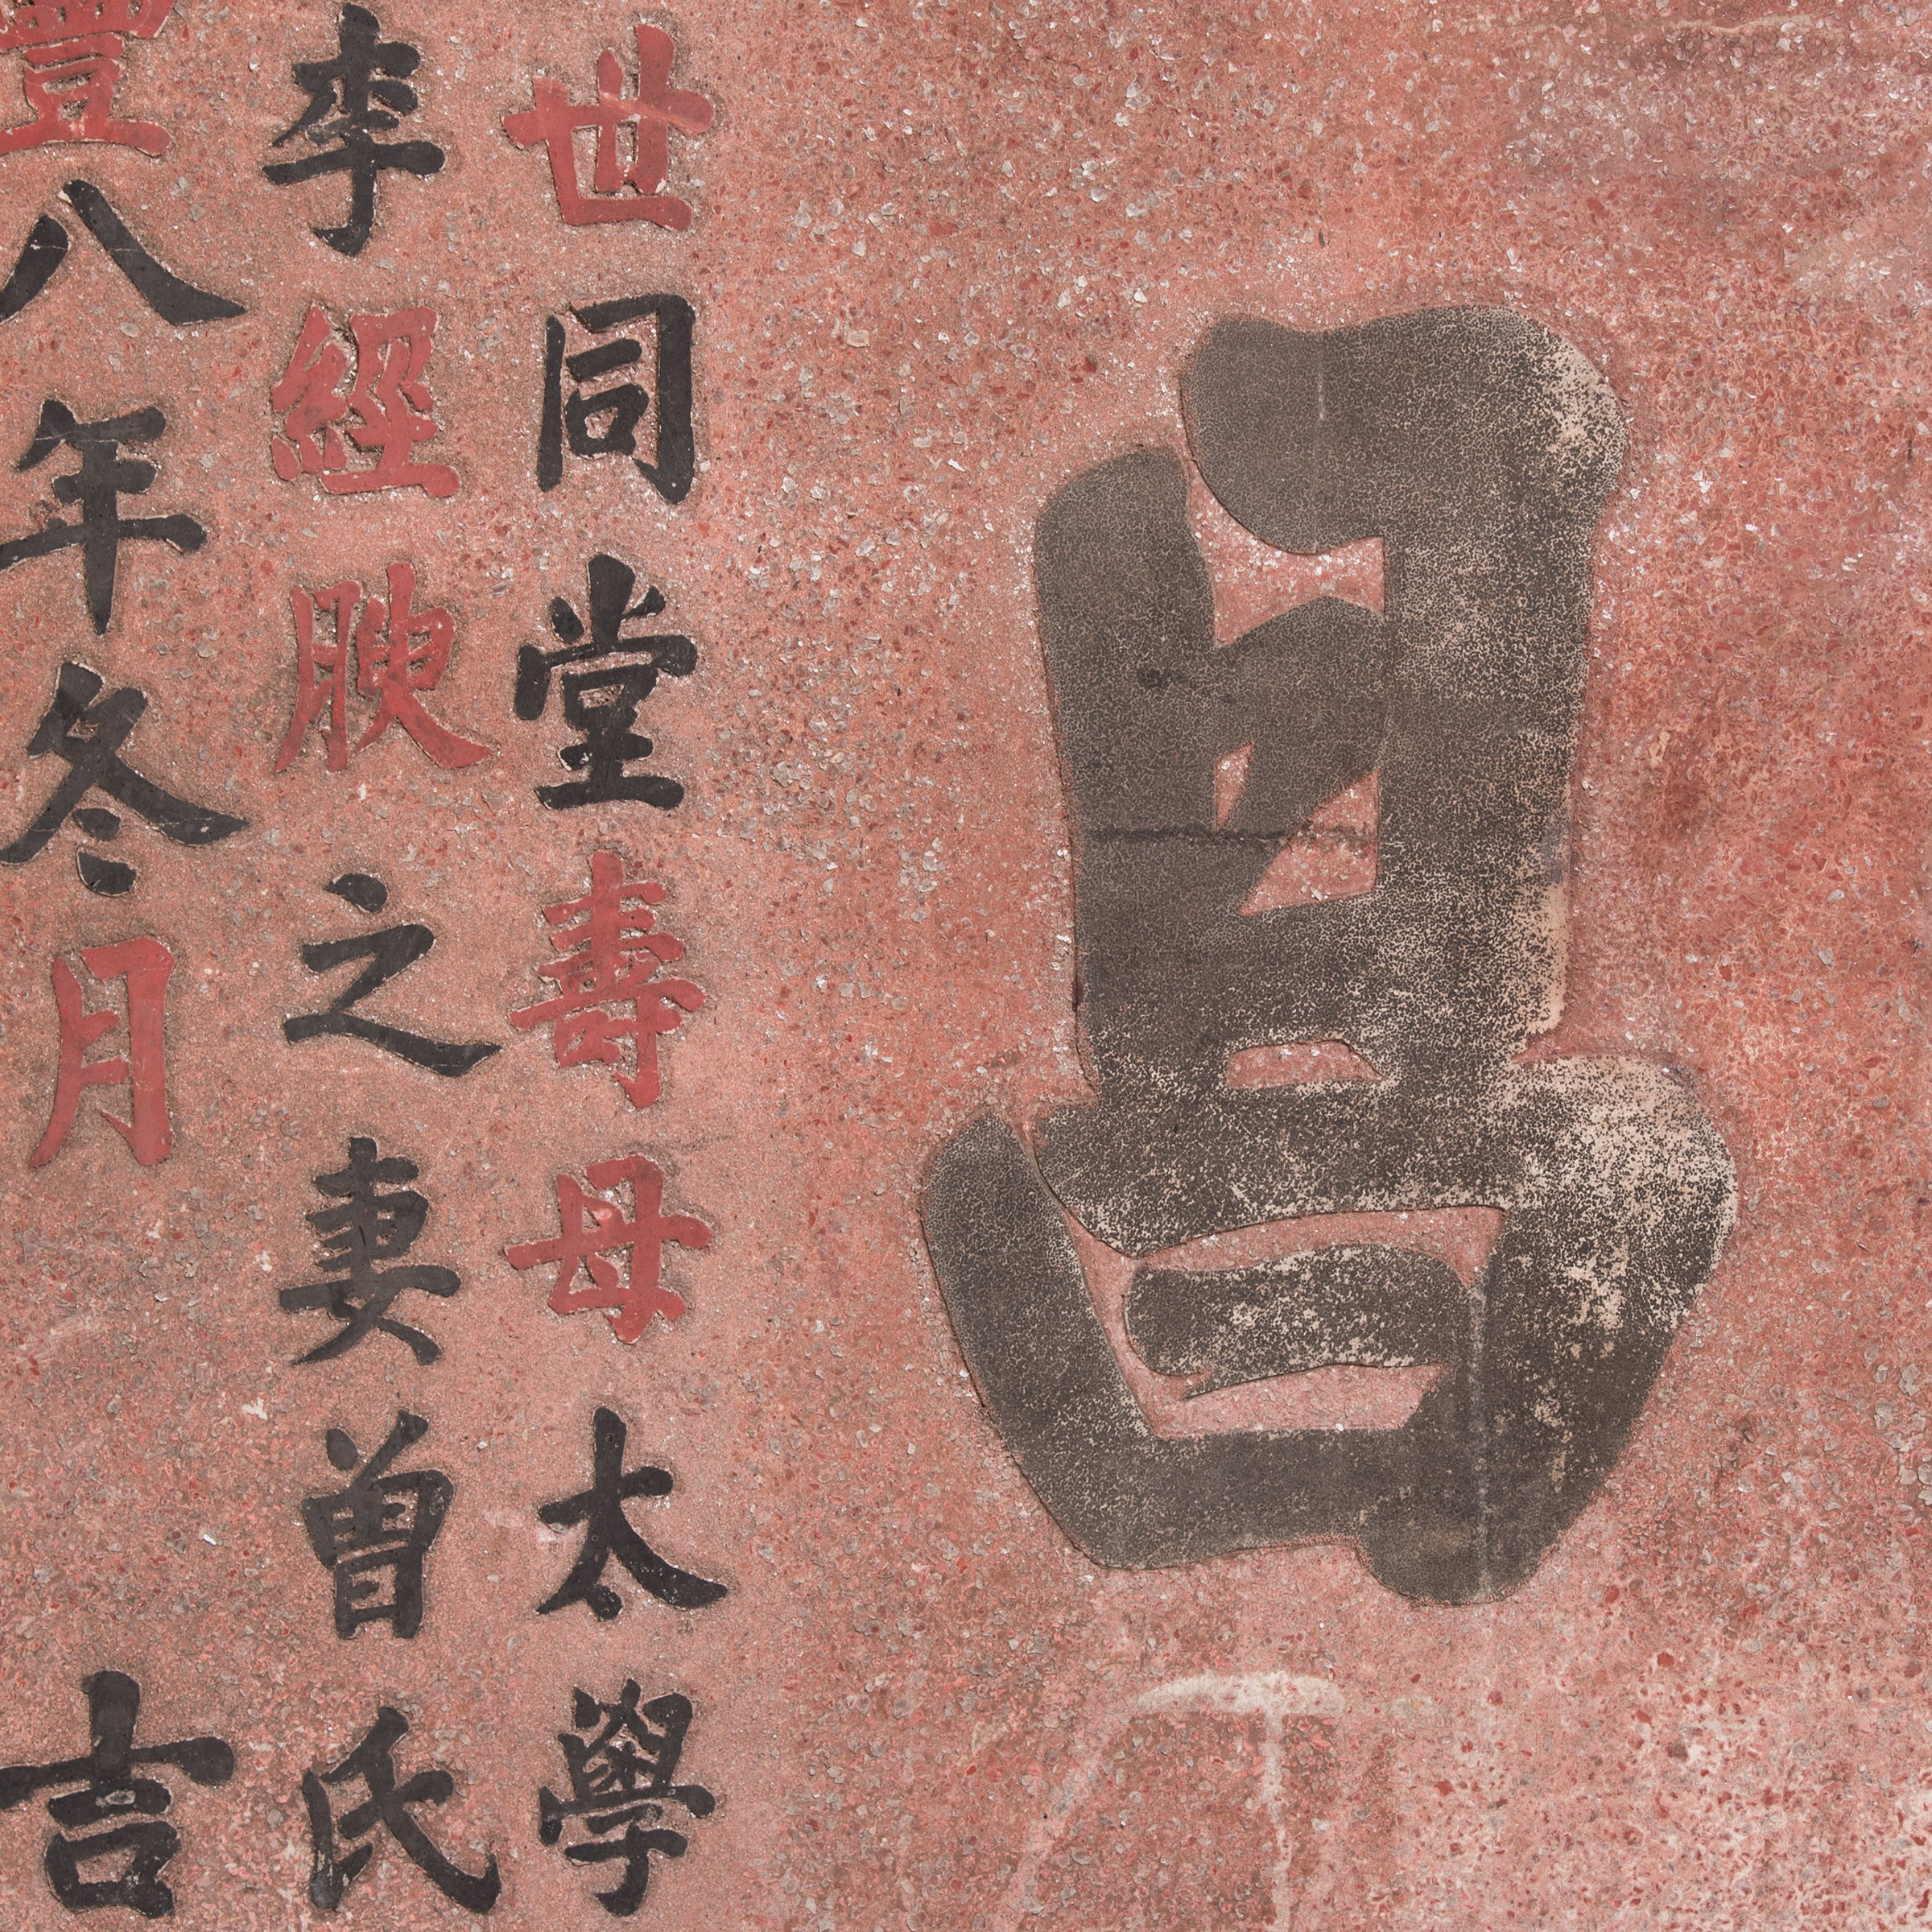 昌
世同堂壽母太學
李經腴之妻曾氏
豐八年冬月 吉